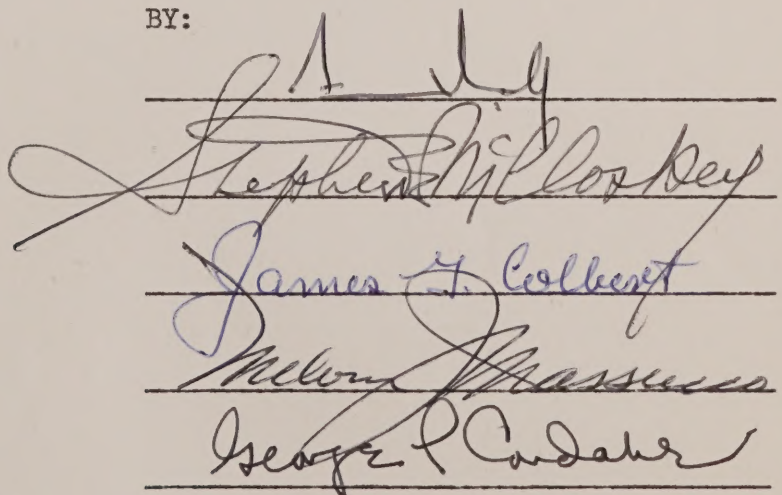 BY:
Stephen E McCloskey
James G. Colbert
Melvin J Massucco
George P Condakes